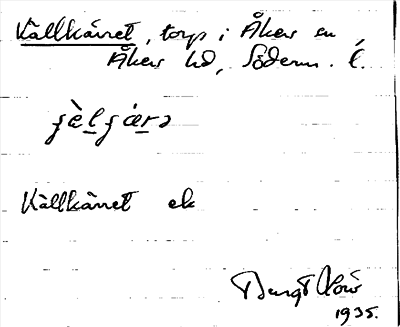 Källkärret, torp i Åkers sn,
Åkers hd, Söderm. l.
Källkärret ek
Bengt
1935.